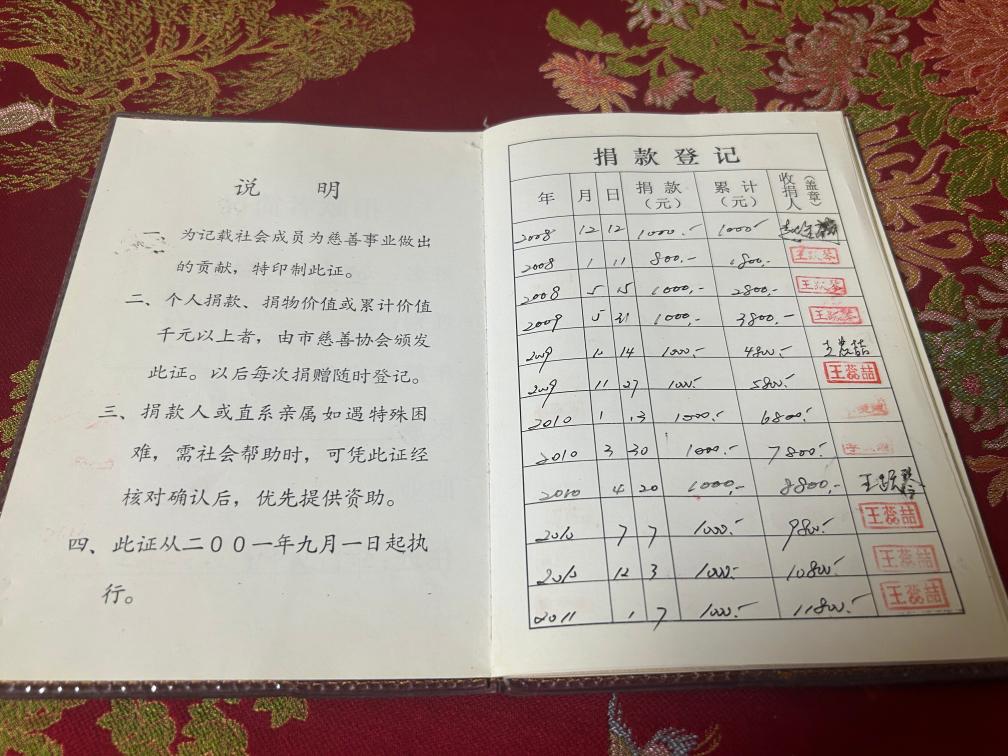 说 明
一、为记载社会成员为慈善事业做出
的贡献，特印制此证。
二、个人捐款、捐物价值或累计价值
千元以上者，由市慈善协会颁发
此证。以后每次捐赠随时登记。
三、捐款人或直系亲属如遇特殊困
难，需社会帮助时，可凭此证经
核对确认后，优先提供资助。
四、此证从二00一年九月一日起执
行。
捐款登记
年 月 日 捐款（元） 累计（元） 收捐人（盖章）
2008 12 12 1000.- 1000.-
2008 1 11 800.- 1800.-
2008 5 15 1000.- 2800.-
2009 5 31 1000.- 3800.-
2009 14 1000.- 4800.- 王蕊喆
2009 11 27 1000.- 5800.- 王蕊喆
2010 1 13 1000.- 6800.-
2010 3 30 1000.- 7800.-
2010 4 20 1000.- 8800.-
2010 7 7 1000.- 9800.- 王蕊喆
2010 12 3 1000.- 10800.- 王蕊喆
2011 1 7 1000.- 11800.- 王蕊喆